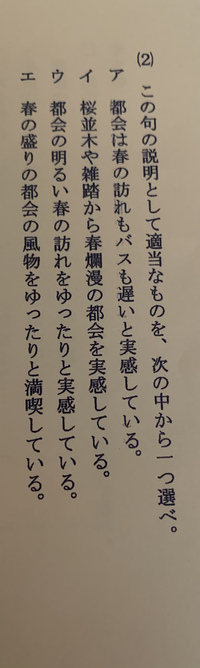 (2) この句の説明として適当なものを、次の中から一つ選べ。
ア 都会は春の訪れもバスも遅いと実感している。
イ 桜並木や雑踏から春爛漫の都会を実感している。
ウ 都会の明るい春の訪れをゆったりと実感している。
エ 春の盛りの都会の風物をゆったりと満喫している。